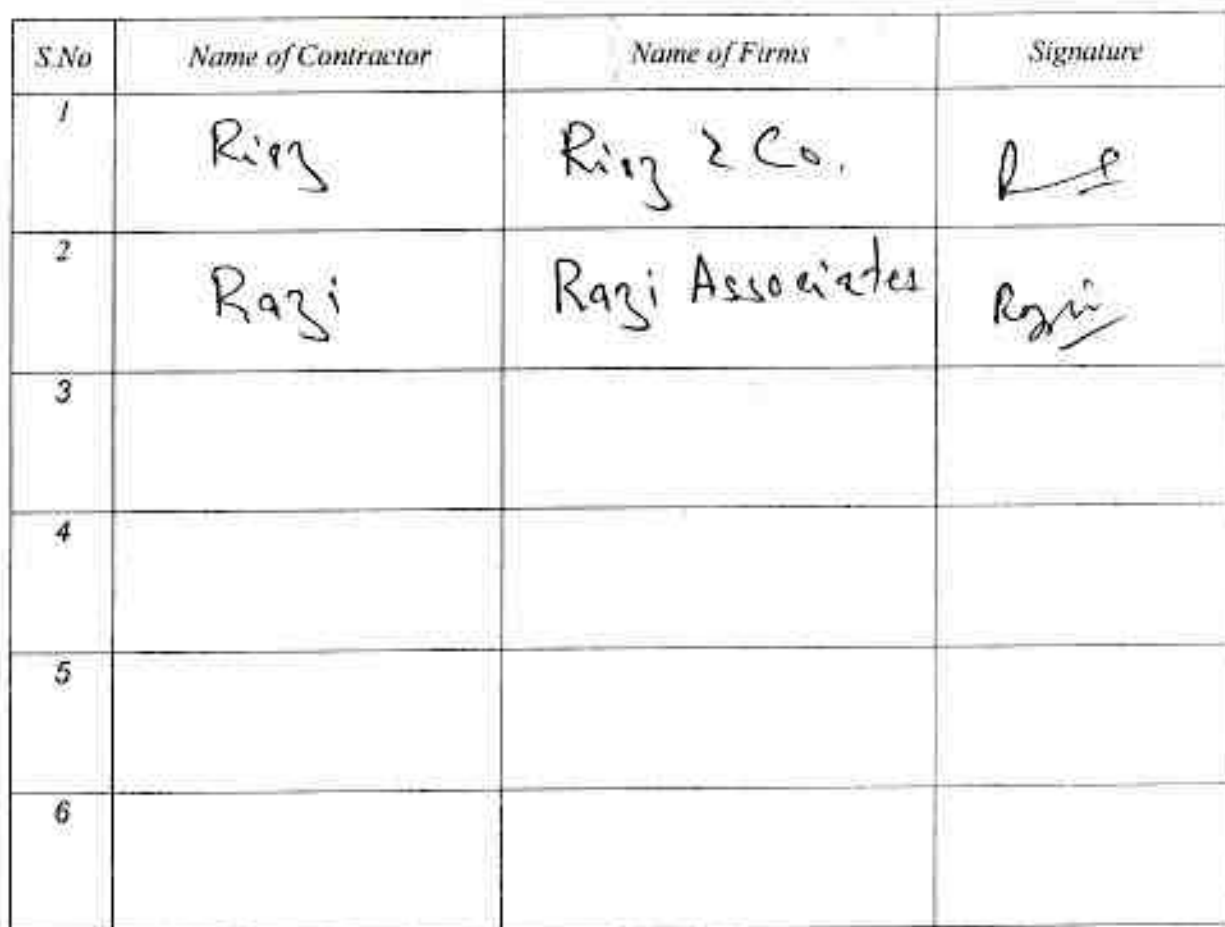 S.No Name of Contractor Name of Firms Signature
1 Riaz Riaz & Co.
2 Razi Razi Associates Razi
3
4
5
6